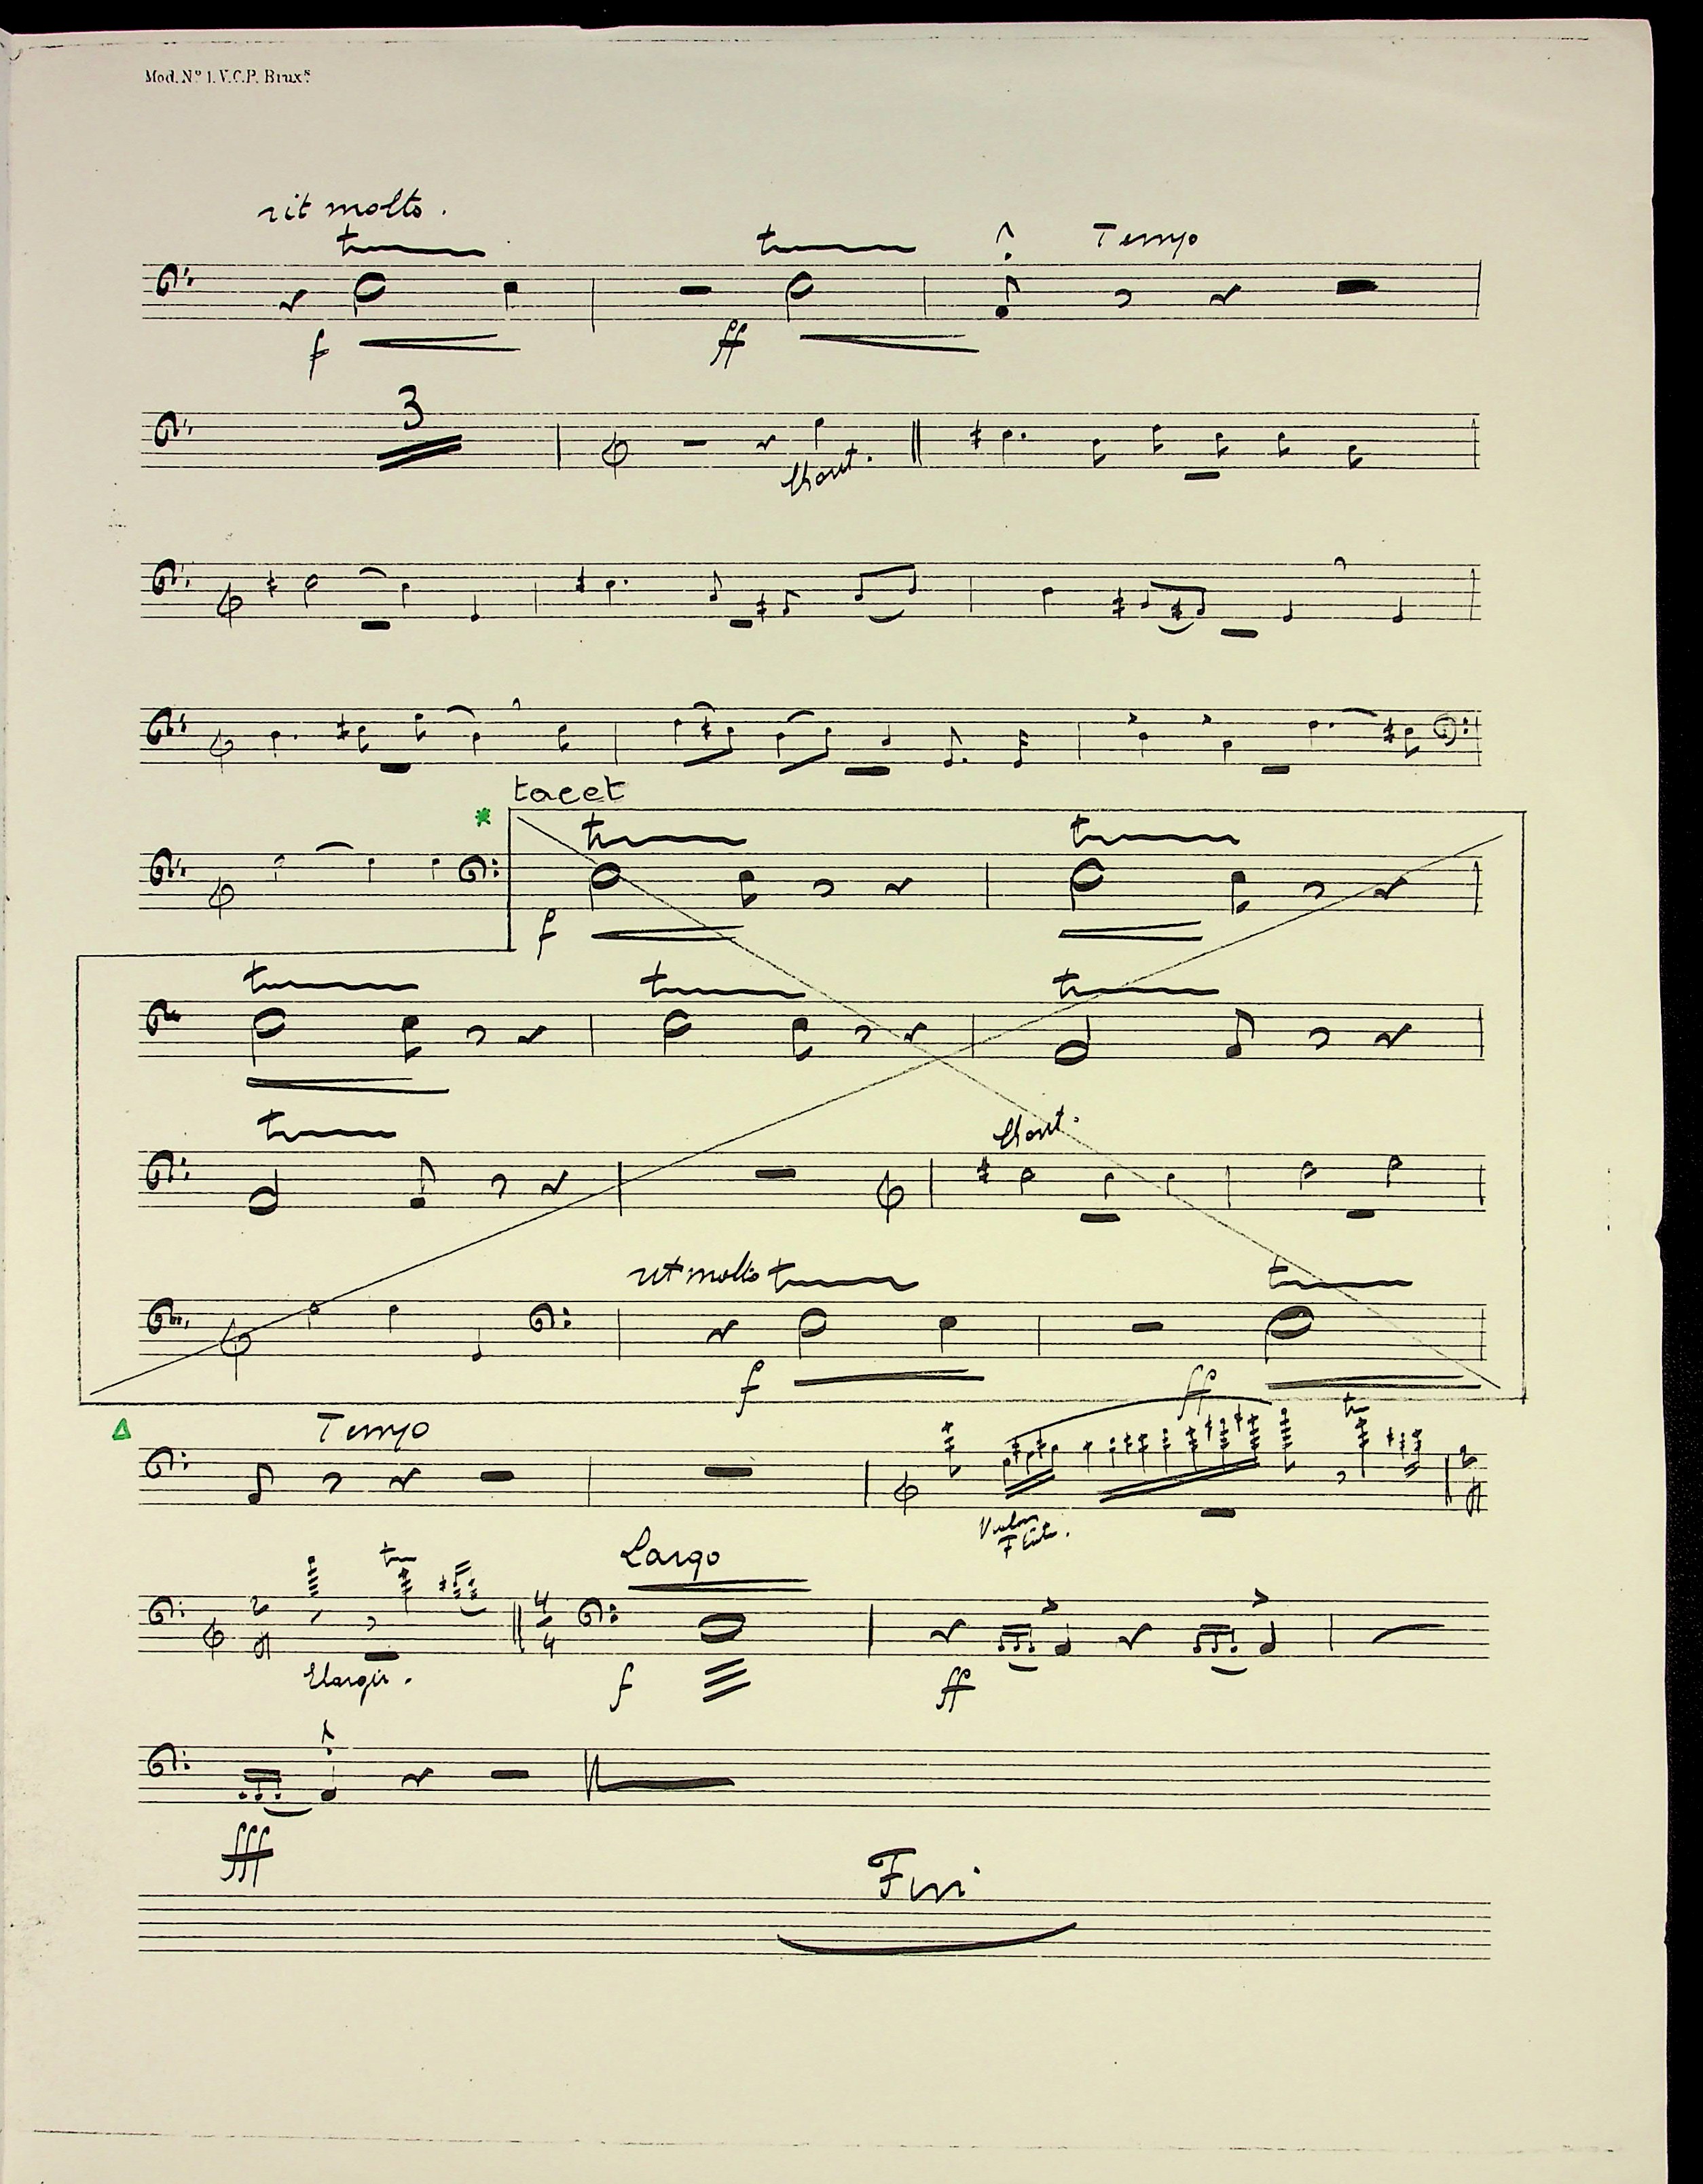 Mod. Nº 1. V.C.P. Bruxˢ
rit molto.
tr tr Tempo
f ff
3
Chant.
tacet
tr tr
f
tr tr tr
tr Chant.
rit molto tr tr
f ff
Tempo tr
2
tr Largo
2 4
4
Elargir. f ff
fff
Fin